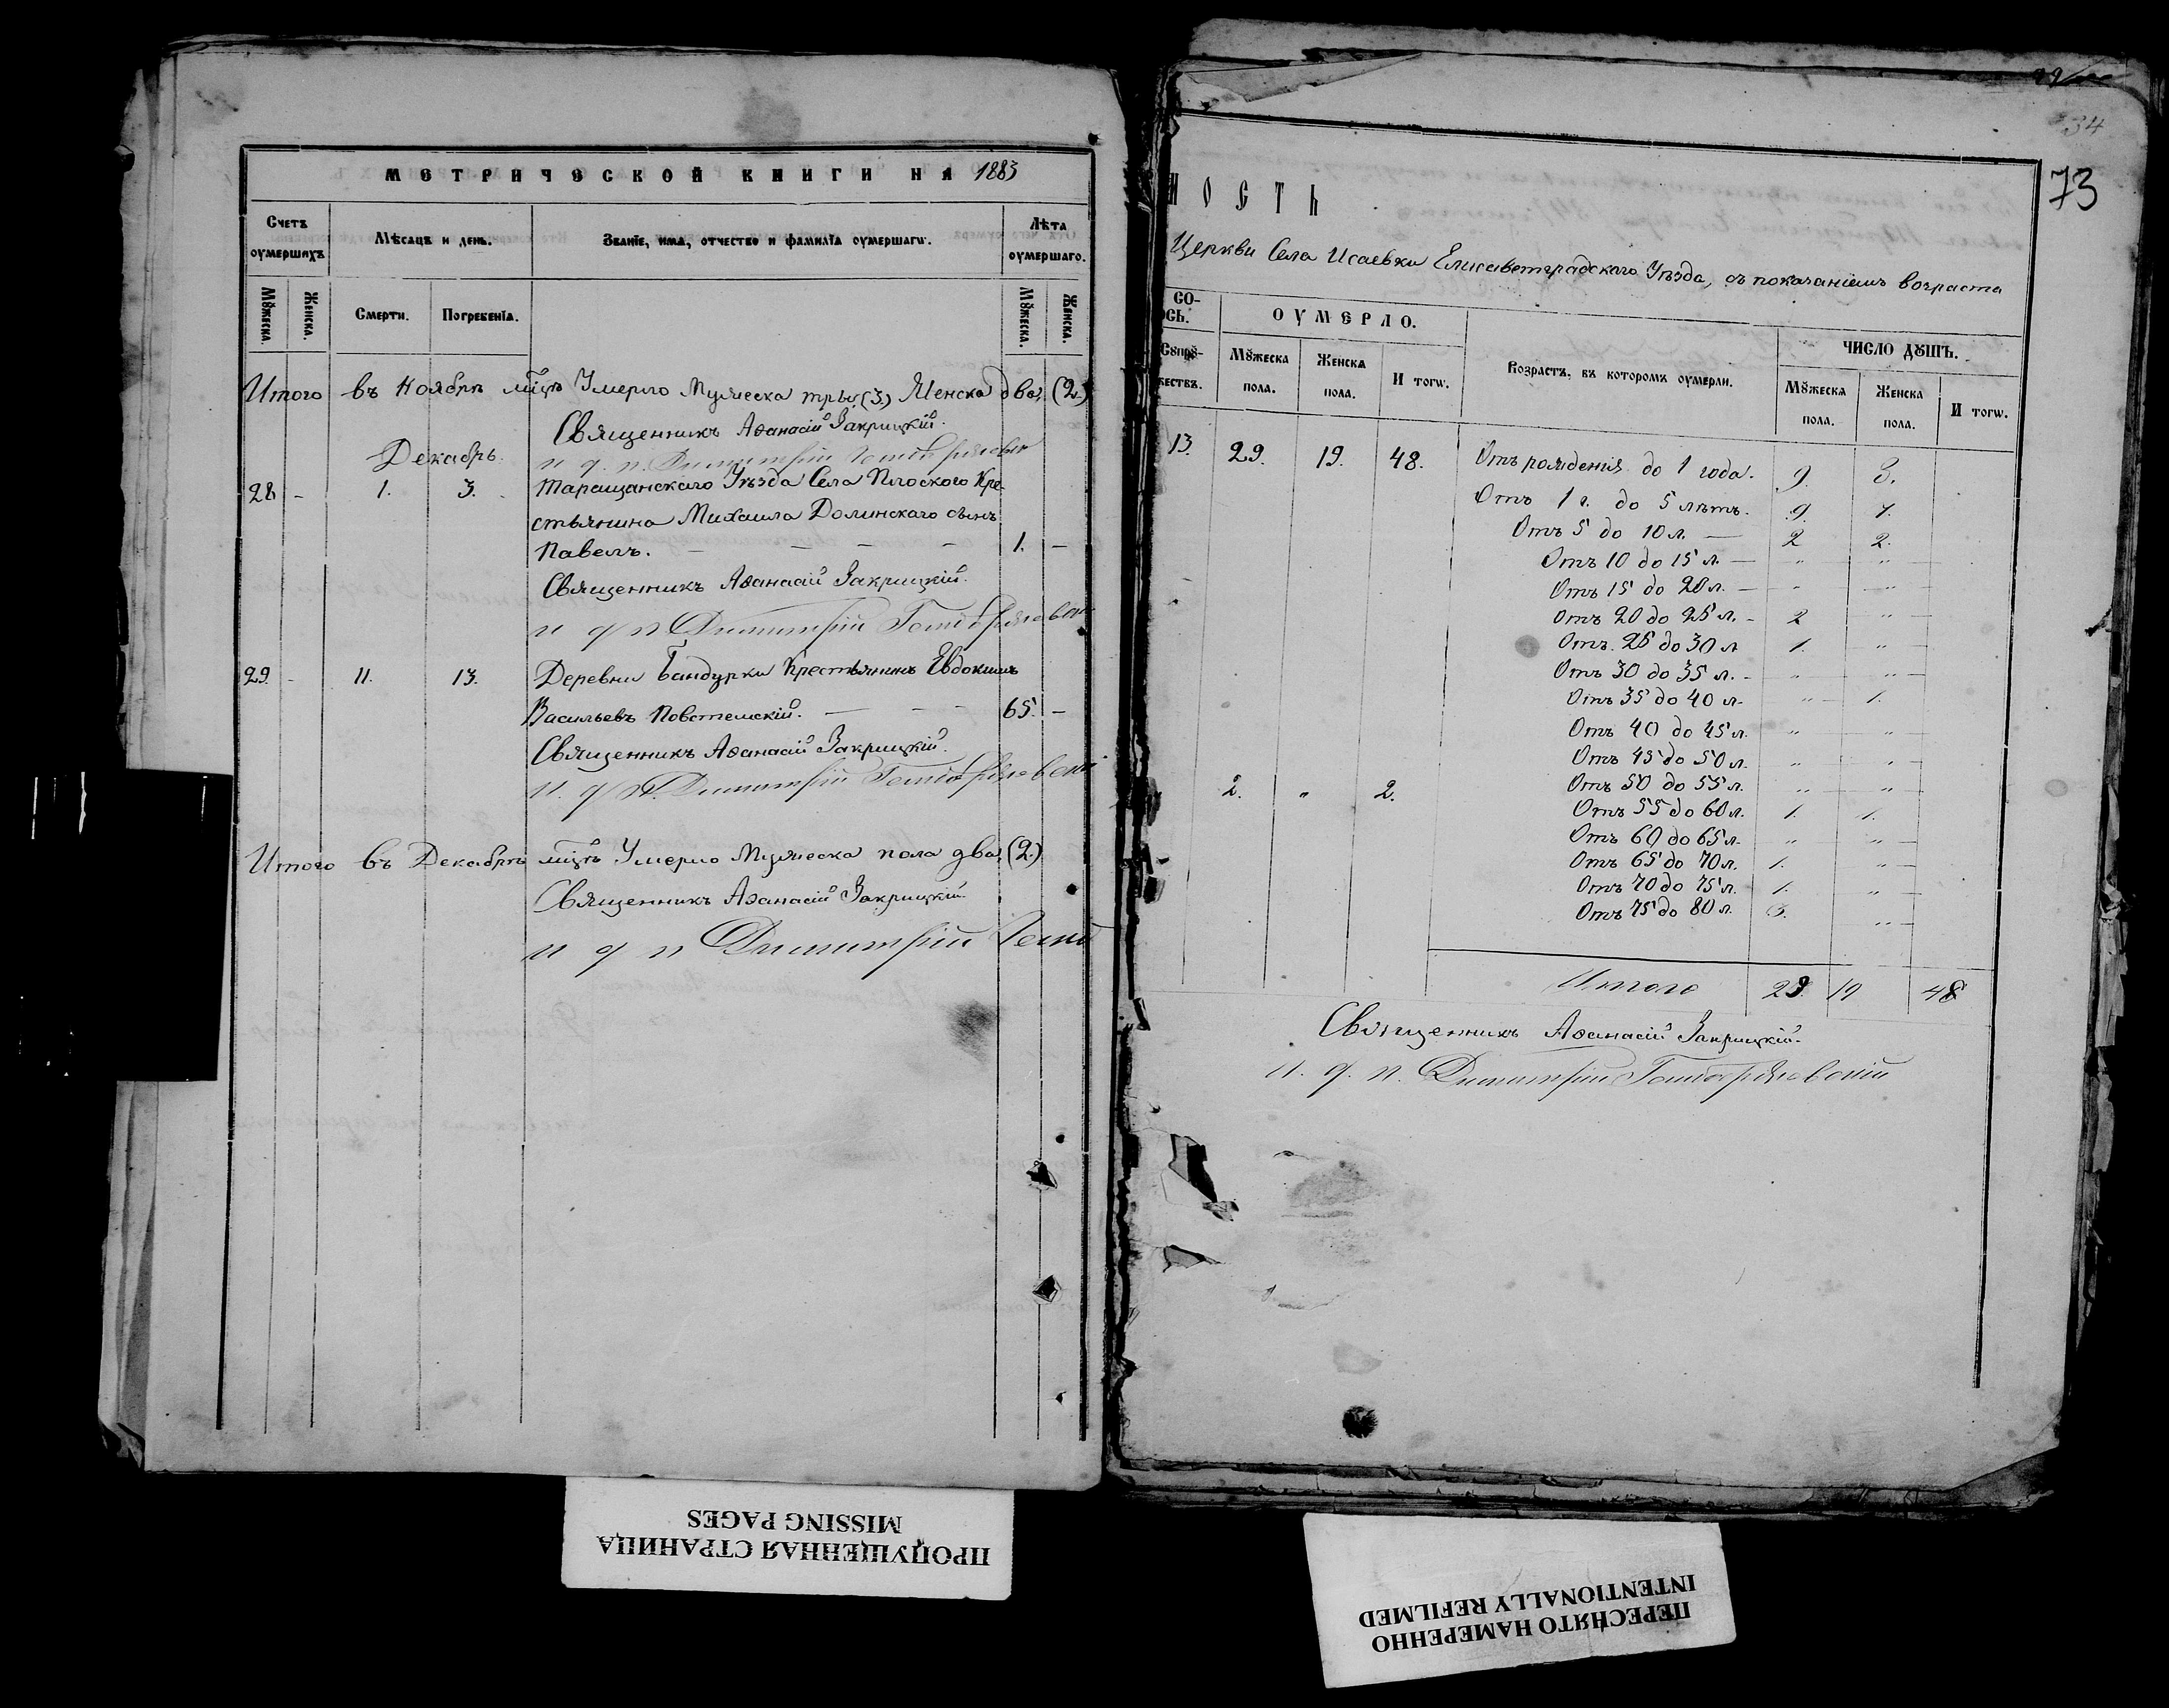 МЕТРИЧЕСКОЙ КНИГИ НА 1883
Счетъ оумершихъ
Мѣсяцъ и день.
Званіе, имя, отчество и фамилія оумершагѡ.
Лѣта оумершаго.
Мꙋжеска.
Женска.
Смерти.
Погребенія.
Мꙋжеска.
Женска.
Итого въ Ноябрѣ мцѣ Умерло Мужеска три (3.) Женска два (2.)
Священникъ Аѳанасій Закрицкій.
и д. п. Димитрій
Декабрь.
28 - 1. 3. Таращанскаго Уѣзда Села Плоского Кре-
стьянина Михаила Долинскаго сынъ
Павелъ. — — — — 1. —
Священникъ Аѳанасій Закрицкій.
и д п Димитрій
29. - 11. 13. Деревни Бандурки Крестьянинъ Евдокимъ
Васильевъ — — — 65. —
Священникъ Аѳанасій Закрицкій.
и. д. п. Димитрій
Итого въ Декабрѣ мцѣ Умерло Мужеска пола два (2.)
Священникъ Аѳанасій Закрицкій
и д п Димитрій
34
73
НОСТЬ
Церкви Села Исаевки Елисаветградскаго Уѣзда, съ показаніемъ возраста
СО-
ОСЬ.
ОУМЕРЛО.
Возрастъ, въ которомъ оумерли.
ЧИСЛО ДꙊШЪ.
Сꙋпрꙋ-
жествъ.
Мꙋжеска пола.
Женска пола.
И тогѡ.
Мꙋжеска пола.
Женска пола.
И тогѡ.
13. 29. 19. 48. Отъ рожденія до 1 года. 9. 8.
Отъ 1 г. до 5 лѣтъ. 9. 7.
Отъ 5 до 10 л. — 2 2.
Отъ 10 до 15 л. — " "
Отъ 15 до 20 л. — " "
Отъ 20 до 25 л. - 2 "
Отъ 25 до 30 л 1. "
Отъ 30 до 35 л. - " "
Отъ 35 до 40 л. " 1.
Отъ 40 до 45 л. " "
Отъ 45 до 50 л. " "
2. " 2. Отъ 50 до 55 л. " "
Отъ 55 до 60 л. 1. 1.
Отъ 60 до 65 л. " "
Отъ 65 до 70 л. 1. "
Отъ 70 до 75 л. 1. "
Отъ 75 до 80 л. "
Итого 29. 19 48
Священникъ Аѳанасій Закрицкій.
и. д. п. Димитрій
ПРОПУЩЕННАЯ СТРАНИЦА
MISSING PAGES
ПЕРЕСНЯТО НАМЕРЕННО
INTENTIONALLY REFILMED